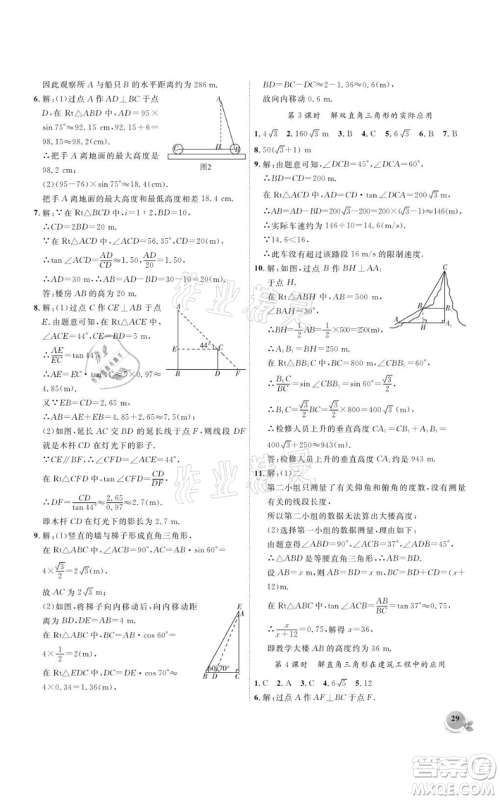 因此观察所 A 与船只 B 的水平距离约为 286 m.
6. 解：(1)过点 A 作 AD⊥BC 于点
D，在 Rt△ABD 中，AD=95×
sin75°≈92.15，92.15+6=
98.15≈98.2(m).
∴把手 A 离地面的最大高度为
98.2(m).
图2
(2)(95−76)×sin75°≈18.4(m).
∴把手 A 离地面的最大高度与最低高度相差 18.4 cm.
7. 解：∵在 Rt△BCD 中，i=1：2，
∴CD=20(m).
∵在 Rt△ACD 中，∠ACD=56.35°，CD=20 m，
∴tan∠ACD=AD/CD，∴AD/20≈1.5，
∴AD=30 m，∴AB=AD−BD=30−10=20(m).
答：楼房 AB 的高为 20 m.
8. 解：(1)过点 C 作 CE⊥AB 于点
E. 由题意可知，∠CEA=90°，
∠ACE=44°，CE=BD=5 m，
∴AE/EC=tan44°，
∴AE=EC·tan44°≈5×0.97≈
4.85(m).
又∵EB=CD=2.65 m，
∴AB=AE+EB=7.5(m).
(2)如图，延长 AC 交 BD 的延长线于点 F，线段 DF
就是木杆 CD 在灯光下的影子.
∵CE∥BF，∴∠CFD=∠ACE=44°.
∵在 Rt△CFD 中，∠CDF=90°，CD=2.65 m，
∴DF=CD/tan44°≈2.65/0.97≈2.7(m).
即木杆 CD 在灯光下的影长约为 2.7 m.
9. 解：(1)竖直的墙与梯子形成直角三角形，
∵在 Rt△ABC 中，AB=4 m，∴AC=AB·sin60°=
4×√3/2=2√3(m).
故 AC 为 2√3 m.
(2)如图，将梯子向内移动后，
在 Rt△ABC 中，BC=AB·cos60°=
4×1/2=2(m)，
在 Rt△DFC 中，FC=DF·cos70°≈
4×0.34=1.36(m)，
60° 70°
∴BF=BC−FC≈2−1.36=0.64(m).
故向内移动约 0.64 m.
第 3 课时 解双直角三角形的实际应用
1. 4√3 2. 160√3 3. 8 4. A 5. 137 6. 75 7. D
8. 50(√3+1) m
9. 解：由题意可知，∠ACD=60°，∠BCD=45°，
∴BD=CD=200 m，AD=CD·tan60°=200√3 m.
∴AB=AD−BD=200√3−200≈146(m)，
∴实际车速约为 146÷10=14.6(m/s)，
∵14.6<16，
∴此车没有超过该路段 16 m/s 的限制速度.
10. 解：如图，过点 B 作 BH⊥AA₁
于点 H.
在 Rt△ABH 中，AB=500 m，
∠BAH=30°，
∴BH=1/2AB=1/2×500=250(m)，
∴A₁B₁=BH=250 m.
在 Rt△BB₁C 中，BC=800 m，∠CBB₁=60°，
∴B₁C/BC=sin∠CBB₁=sin60°=√3/2，
∴B₁C=√3/2BC=√3/2×800=400√3(m)，
∴检修人员上升的垂直高度 CA₁=CB₁+A₁B₁=
400√3+250≈943(m).
答：检修人员上升的垂直高度 CA₁ 约为 943 m.
11. 解：(1)二
第二小组只测量了有关仰角和俯角的度数，没有测量相关
的线段长度，
∴第二小组的数据无法算出大楼高度.
(2)选择第一小组的数据测量，方法如下：
由题意，得∠ABD=∠ADB=45°，∴AB=BD.
设 AB=x m，则 BD=x m，BC=BD+CD=(x+
12)m.
∵在 Rt△ABC 中，tan∠ACB=AB/BC=tan37°≈0.75，
∴x/(x+12)≈0.75，∴x≈36.
即教学大楼 AB 的高度约为 36 m.
第 4 课时 解直角三角形在建筑工程中的应用
1. C 2. C 3. C 4. 6√5 5. 12
6. 解：过点 A 作 AF⊥BC 于点 F.
29